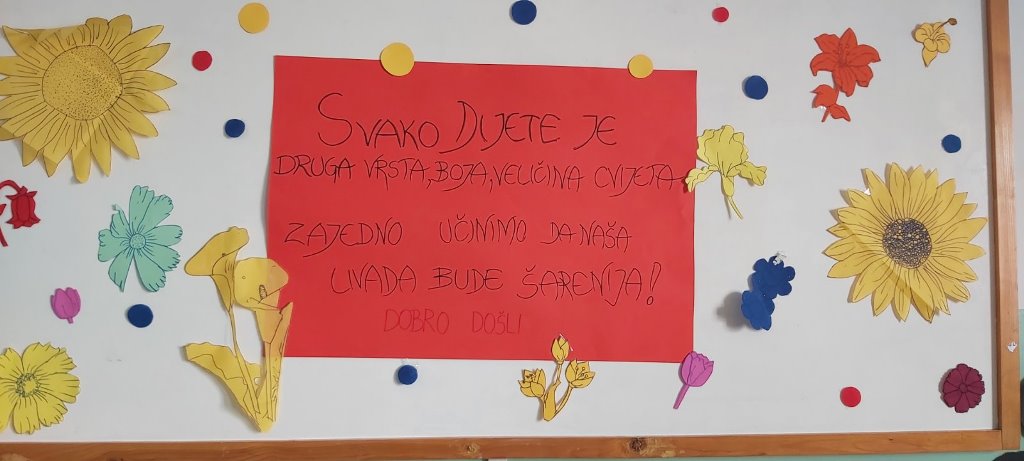 SVAKO DIJETE JE
DRUGA VRSTA, BOJA, VELIČINA CVIJETA.
ZAJEDNO UČINIMO DA NAŠA
LIVADA BUDE ŠARENIJA!
DOBRO DOŠLI